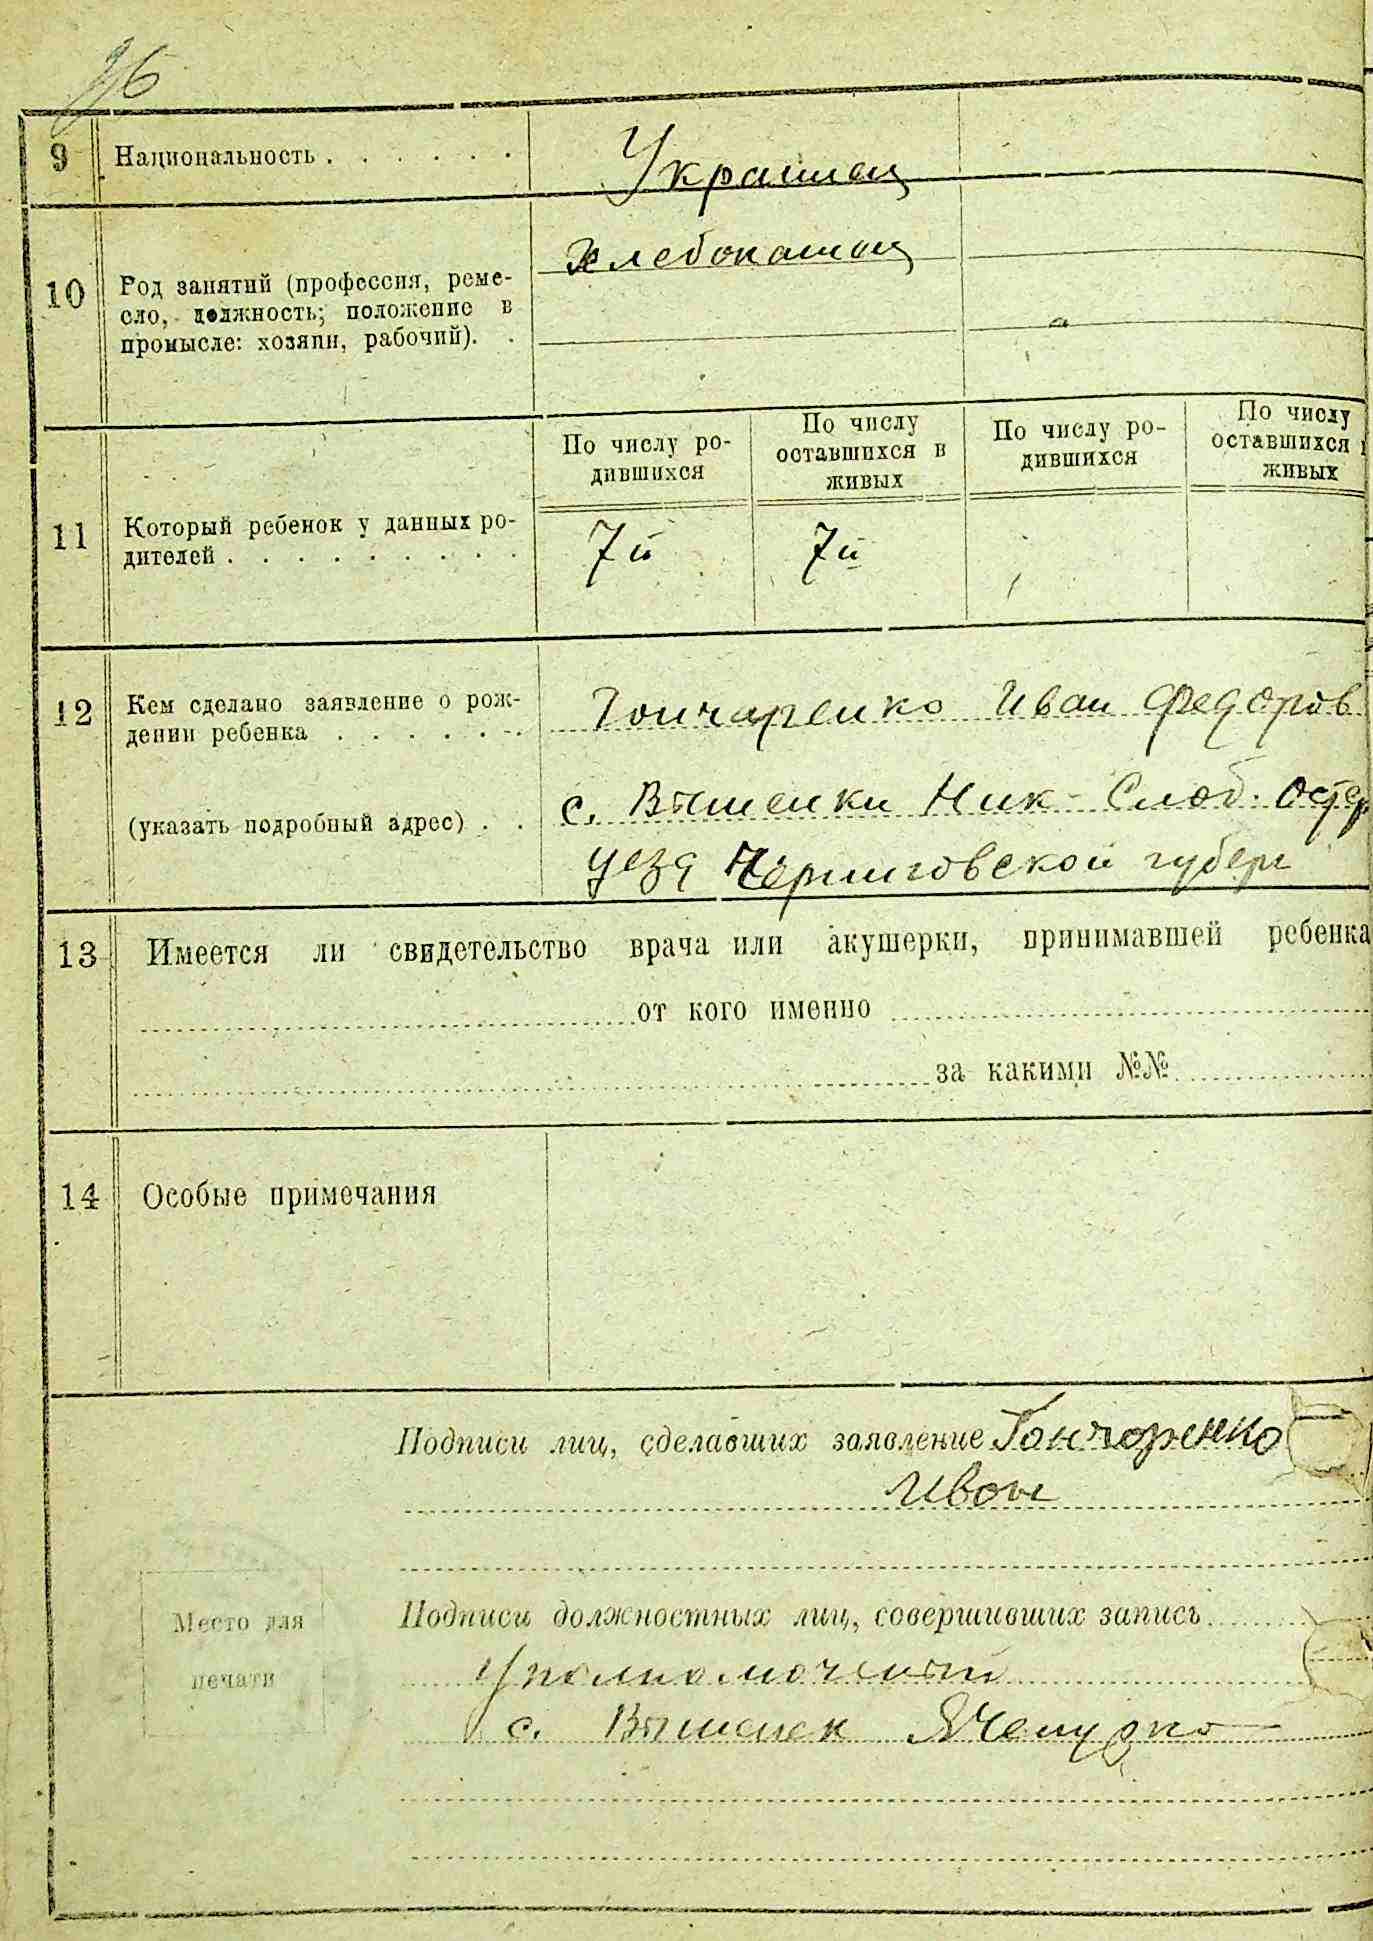 96
9 Национальность . . . . . . Украинец
Хлебопашец
10 Род занятий (профессия, реме-
сло, должность; положение в
промысле: хозяин, рабочий). .
По числу ро-
дившихся
По числу
оставшихся в
живых
По числу ро-
дившихся
По числу
оставшихся
живых
11 Который ребенок у данных ро-
дителей . . . . . . . . .
7й 7й
12 Кем сделано заявление о рож-
дении ребенка . . . . . .
Гончаренко Иван Федоров
(указать подробный адрес) . .
с. Вышенки Ник-Слоб. Остер
уезд Черниговской губерн
13 Имеется ли свидетельство врача или акушерки, принимавшей ребенка
от кого именно
за какими №№
14 Особые примечания
Подписи лиц, сделавших заявление Гончоренко
Ивон
Место для
печати
Подписи должностных лиц, совершивших запись
Уполномоченый
с. Вышенек